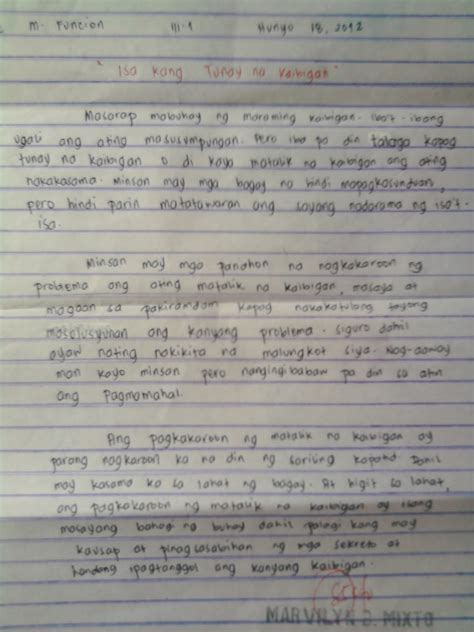 M. Funcion III-1 Hunyo 18, 2012
"Isa kang Tunay na Kaibigan"
Masarap mabuhay ng maraming kaibigan. Iba't-ibang
ugali ang ating masusumpungan. Pero iba pa din talaga kapag
tunay na kaibigan o di kaya matalik na kaibigan ang ating
nakakasama. Minsan may mga bagay na hindi mapagkasunduan,
pero hindi parin matatawaran ang sayang nadarama ng isa't-
isa.
Minsan may mga panahon na nagkakaroon ng
problema ang ating matalik na kaibigan, masaya at
magaan sa pakiramdam kapag nakakatulong tayong
masolusyunan ang kanyang problema. Siguro dahil
ayaw nating nakikita na malungkot siya. Nag-aaway
man kayo minsan pero nangingibabaw pa din sa atin
ang Pagmamahal.
Ang pagkakaroon ng matalik na kaibigan ay
parang nagkaroon ka na din ng sariling kapatid. Dahil
may kasama ka sa lahat ng bagay. At higit sa lahat,
ang pagkakaroon ng matalik na kaibigan ay isang
masayang bahagi ng buhay dahil palagi kang may
kausap at pinagsasabihan ng mga sekreto at
handang ipagtanggol ang kanyang kaibigan.
MARVILYN D. MIXTO